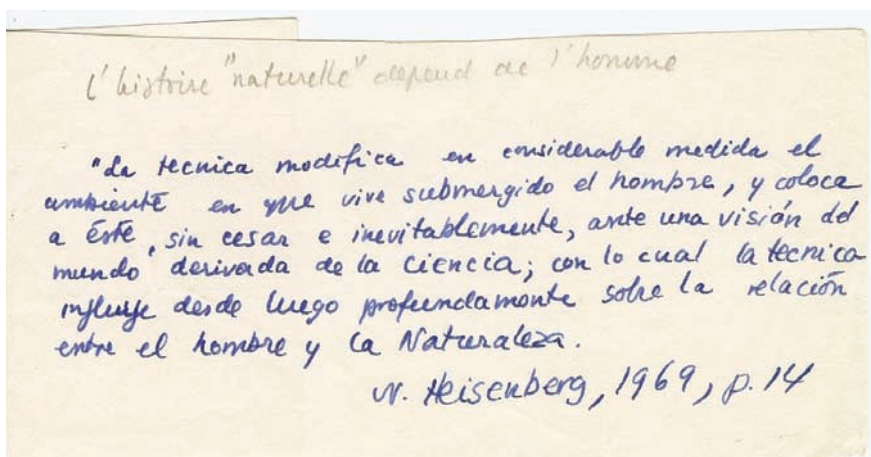 l'histoire "naturelle" depend de l'homme
"La tecnica modifica en considerable medida el
ambiente en que vive submergido el hombre, y coloca
a éste, sin cesar e inevitablemente, ante una visión del
mundo derivada de la Ciencia; con lo cual la tecnica
influye desde luego profundamente sobre la relación
entre el hombre y la Naturaleza.
W. Heisenberg, 1969, p. 14